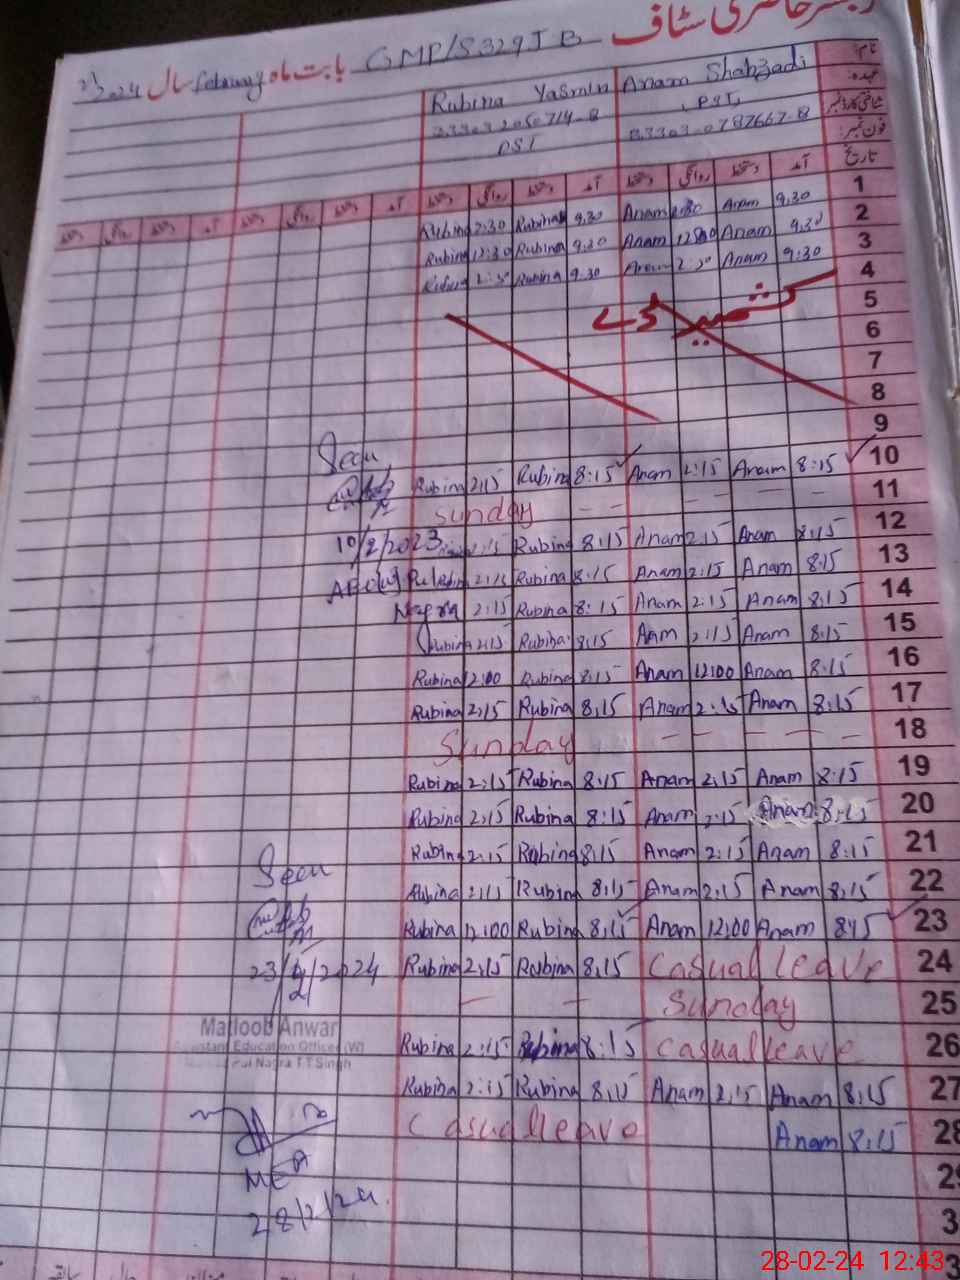 رجسٹر حاضری سٹاف
GMP/S 329 JB بابت ماہ February سال 2024
نام: Anam Shahzadi Rubina Yasmin
عہدہ: PST
شناختی کارڈ نمبر
فون نمبر: PST
تاریخ
آمد دستخط روانگی دستخط آمد دستخط روانگی دستخط آمد دستخط روانگی دستخط آمد دستخط روانگی دستخط
1 9:30 Anam Anam 9:30 Rubina 2:30 Rubina
2 9:30 Anam 12:30 Anam 9:30 Rubina 12:30 Rubina
3 9:30 Anam 2:30 Anam 9:30 Rubina 2:30 Rubina
4
5 کشمیر ڈے
6
7
8
9
Seen
10 8:15 Anam 2:15 Anam 8:15 Rubina 2:15 Rubina
11 Sunday
10/2/2023
12 8:15 Anam 2:15 Anam 8:15 Rubina 2:15
13 8:15 Anam 2:15 Anam 8:15 Rubina 2:15
14 8:15 Anam 2:15 Anam 8:15 Rubina 2:15
15 8:15 Anam 2:15 Anam 8:15 Rubina 2:15 Rubina
16 8:15 Anam 12:00 Anam 8:15 Rubina 12:00 Rubina
17 8:15 Anam 2:15 Anam 8:15 Rubina 2:15 Rubina
18 Sunday
19 8:15 Anam 2:15 Anam 8:15 Rubina 2:15 Rubina
20 8:15 Anam 2:15 Anam 8:15 Rubina 2:15 Rubina
21 8:15 Anam 2:15 Anam 8:15 Rubina 2:15 Rubina
Seen
22 8:15 Anam 2:15 Anam 8:15 Rubina 2:15 Rubina
23 8:15 Anam 12:00 Anam 8:15 Rubina 12:00 Rubina
24 Casual leave 8:15 Rubina 2:15 Rubina
23/2/2024
25 Sunday
Matloob Anwar
Assistant Education Officer (W)
Pul Nagra T.T Singh
26 Casual leave 8:15 Rubina 2:15 Rubina
27 8:15 Anam 2:15 Anam 8:15 Rubina 2:15 Rubina
28 8:15 Anam Casual leave
29
MEA
28/2/24
28-02-24 12:43